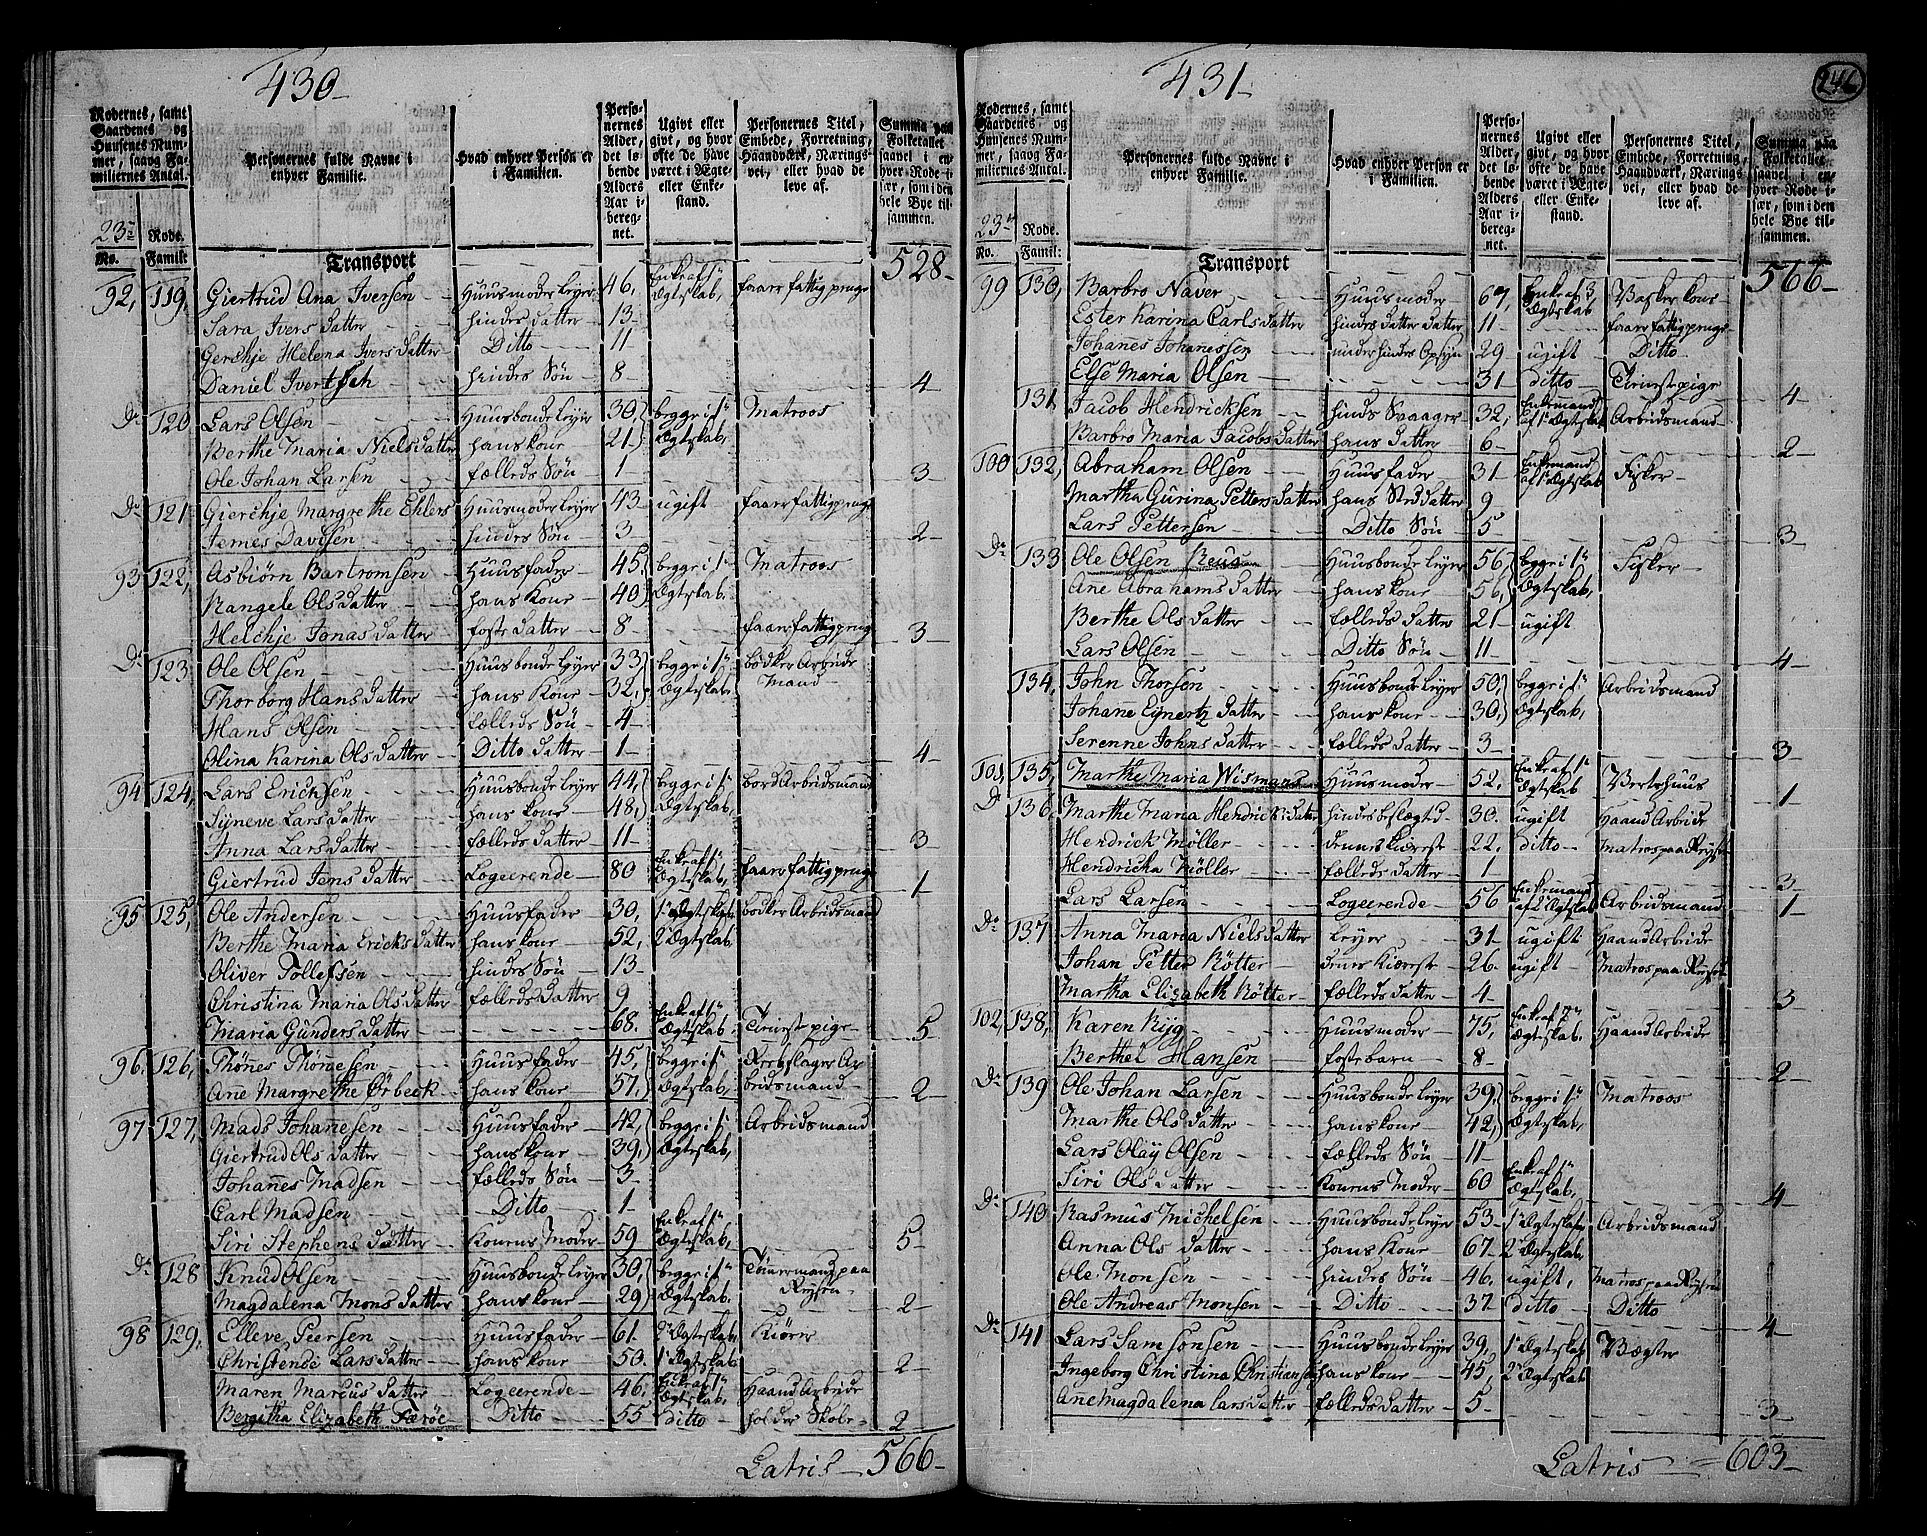 430
Rodernes, samt Gaardenes og Huusenes Nummer, saavg Familiernes Antal.
Personernes fulde Navne i enhver Familie.
Hvad enhver Person er i Familien.
Personernes Alder, det løbende Alders Aar iberegnet.
Ugivt eller givt, og hvor ofte de have været i Ægte- eller Enkestand.
Personernes Titel, Embede, Forretning, Haandværk, Næringsvei, eller hvad de leve af.
Summa paa Folketallet saavel i enhver Rode især, som i den hele Bye tilsammen.
23de Rode.
No. Famil:
Transport 528
92, 119, Giertrud Ana Iversen Huusmoder Leyer 46, Enke af 1te Ægtskab, faaer fattig penge
Sara Ivers Datter hindes Datter 13
Gerchje Helena Ivers Datter Ditto 11
Daniel Ivertsen hindes Søn 8 4
Do 120 Lars Olsen Huusbonde Leyer 30, begge i 1te Ægtskab, Matroos
Berthe Maria Niels Datter hans kone 21,
Ole Johan Larsen fælleds Søn 1 3
Do 121 Gierchje Margrethe Ehlers Huusmoder Leyer 43 ugift faaer fattig penge
Jemes Davisen hindes Søn 3 2
93 122, Asbiørn Bartromsen Huusfader 45, begge i 1te Ægtskab, Matroos
Rangele Ols Datter hans Kone 40
Helchje Jonas Datter foste Datter 8 faaer fattig penge 3
Do 123 Ole Olsen Huusbonde Leyer 33 begge i 1te Ægtskab, bødker Arbeids Mand
Thorborg Hans Datter hans Kone 32,
Hans Olsen fælleds Søn 4
Olina Karina Ols Datter Ditto Datter 1 4
94 124, Lars Ericksen Huusbonde Leyer 44, begge i 1te Ægtskab, bord Arbeidsmand
Syneve Lars Datter hans kone 48,
Anna Lars Datter fælleds Datter 11 3
Giertrud Jens Datter Logeerende 80 Enke af 1te Ægtskab, faaer fattig penge 1
95 125, Ole Andersen Huusfader 30, 1te Ægtskab bødker Arbeidsmand
Berthe Maria Ericks Datter hans kone 52, 2de Ægtskab,
Oliver Tollefsen hindes Søn 13
Christina Maria Ols Datter fælleds Datter 9
Maria Gunders Datter 68. Enke af 1te Ægtskab Tienest pige 5
96, 126, Thønnes Thønnesen Huusfader 45, begge i 1te Ægtskab, Reebslager Arbeidsmand
Ane Margrethe Ørbeck hans kone 57, 2
97 127, Mads Johanesen Huusfader 42, begge i 1te Ægtskab, Arbeidsmand
Giertrud Ols Datter hans kone 39,
Johannes Madsen fælleds Søn 3
Carl Madsen Ditto 1
Siri Stephens Datter Konens Moder 59 Enke af 1te Ægtskab, 5
Do 128 Knud Olsen Huusbonde Leyer 30, begge i 1te Ægtskab, Tømmermand paa Reysen
Magdalena Mons Datter hans kone 29 2
98 129, Elleve Peersen Huusfader 61. 2de Ægtskab,
Christense Lars Datter hans kone 50. 1te Ægtskab 2
Maren Marcus Datter Logeerende 46, Enke af 1te Ægtskab, Haand Arbeide
Bergitha Elizabeth Færøe Ditto 55 ditto holder Skole 2
Latris 566
431
246
Rodernes, samt Gaardenes og Huusenes Nummer, saavg Familiernes Antal.
Personernes fulde Navne i enhver Familie.
Hvad enhver Person er i Familien.
Personernes Alder, det løbende Alders Aar iberegnet.
Ugivt eller givt, og hvor ofte de have været i Ægte- eller Enkestand.
Personernes Titel, Embede, Forretning, Haandværk, Næringsvei, eller hvad de leve af.
Summa paa Folketallet saavel i enhver Rode især, som i den hele Bye tilsammen.
23de Rode.
No. Famil:
Transport 566
99 130, Barbro Naver Huusmoder 67, Enke af 3 Ægtskab Vasker kone
Ester Karina Carls Datter hindes Datter Datter 11 faaer fattig penge
Johanes Johanessen under hindes Opsyn 29 ugift Ditto
Else Maria Olsen 31 ditto Tienest pige 4
131, Jacob Hendricksen hindes Svaager 32, Enkemand af 1te Ægtskab Arbeidsmand
Barbro Maria Jacobs Datter hans Datter 6 2
100 132, Abraham Olsen Huusfader 31 Enkemand af 1te Ægtskab Fisker
Martha Gurina Petters Datter hans Sted Datter 9
Lars Pettersen Ditto Søn 5 3
Do 133 Ole Olsen Reus Huusbonde Leyer 56, begge i 1te Ægtskab, Fisker
Ane Abrahams Datter hans kone 56,
Berthe Ols Datter fælleds Datter 21 ugift
Lars Olsen Ditto Søn 11 4
134, John Thorsen Huusbonde Leyer 50, begge i 1te Ægtskab, Arbeidsmand
Johanne Eynertz Datter hans kone 30,
Serenne Johns Datter fælleds Datter 3 3
101, 135, Marthe Maria Wismans Huusmoder 52. Enke af 1te Ægtskab Vertshuus 1
Do 136, Marthe Maria Hendrichs Datter hindes beslægted 30. ugift Haand Arbeide
Hendrick Møller dennes Kiereste 22, ditto Matros paa Reyse
Hendricka Møller fælleds Datter 1 3
Lars Larsen Logeerende 56 Enkemand af 2 Ægtskab Arbeidsmand 1
Do 137 Anna Maria Niels Datter Leyer 31 ugift Haand Arbeide
Johan Petter Røtter denes Kiereste 26 ugift Matros paa Reyse
Martha Elizabeth Røtter fælleds Datter 4 3
102, 138, Karen Ryg Huusmoder 75, Enke af 2 Ægtskab. Haand Arbeide
Berthel Hansen foste barn 8 2
Do 139 Ole Johan Larsen Huusbonde Leyer 39, begge i 1te Ægtskab, Matroos
Marthe Ols Datter hans kone 42,
Lars Olay Olsen fælleds Søn 11
Siri Ols Datter Konens Moder 60 Enke af 1te Ægtskab, 4
Do 140 Rasmus Michelsen Huusbonde Leyer 53 1te Ægtskab Arbeidsmand
Anna Ols Datter hans Kone 67 2de Ægtskab,
Ole Monsen hindes Søn 46, ugift, Matros paa Reysen
Ole Andreas Monsen Ditto 37 ditto Ditto 4
Do 141 Lars Samsonsen Huusbonde Leyer 39, 1te Ægtskab Vægter
Ingeborg Christina Christians hans kone 45, 2de Ægtskab
Ane Magdalena Lars Datter fælleds Datter 5 3
Latris 603